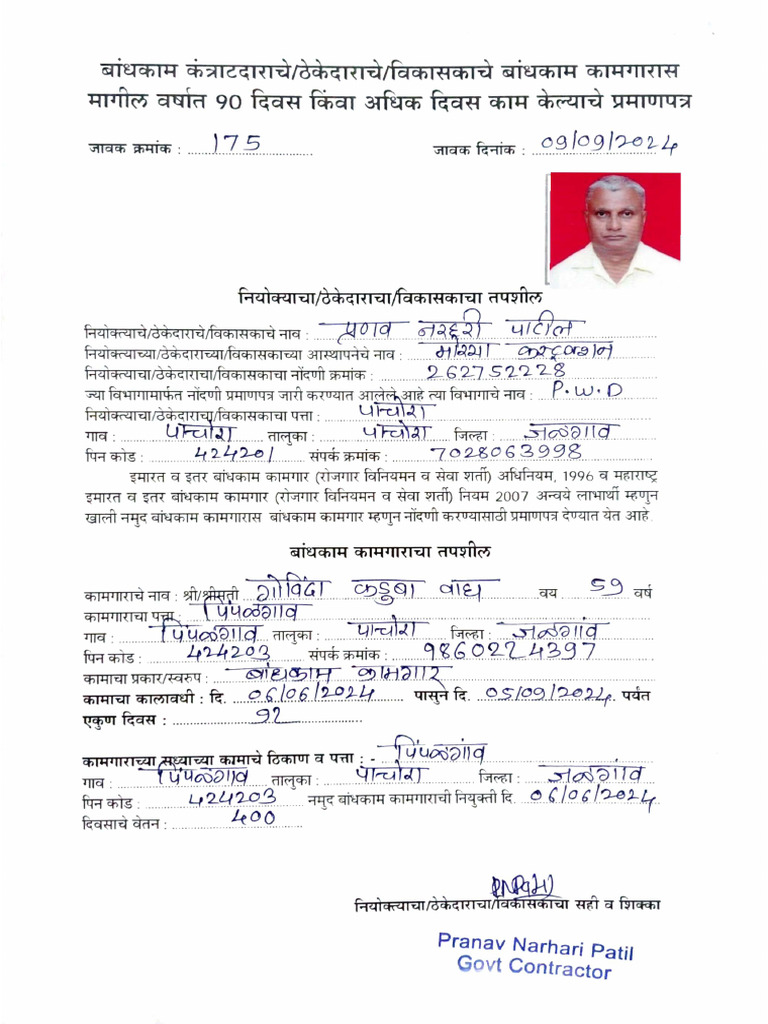 बांधकाम कंत्राटदाराचे/ठेकेदाराचे/विकासकाचे बांधकाम कामगारास
मागील वर्षात 90 दिवस किंवा अधिक दिवस काम केल्याचे प्रमाणपत्र
जावक क्रमांक : 175 जावक दिनांक : 09/09/2024
नियोक्याचा/ठेकेदाराचा/विकासकाचा तपशील
नियोक्त्याचे/ठेकेदाराचे/विकासकाचे नाव : प्रणव नरहरी पाटील
नियोक्त्याच्या/ठेकेदाराच्या/विकासकाच्या आस्थापनेचे नाव : मोरया कंस्ट्रक्शन
नियोक्त्याचा/ठेकेदाराचा/विकासकाचा नोंदणी क्रमांक : 262752228
ज्या विभागामार्फत नोंदणी प्रमाणपत्र जारी करण्यात आलेले आहे त्या विभागाचे नाव : P.W.D
नियोक्त्याचा/ठेकेदाराचा/विकासकाचा पत्ता : पाचोरा
गाव : पाचोरा तालुका : पाचोरा जिल्हा : जळगाव
पिन कोड : 424201 संपर्क क्रमांक : 7028063998
इमारत व इतर बांधकाम कामगार (रोजगार विनियमन व सेवा शर्ती) अधिनियम, 1996 व महाराष्ट्र
इमारत व इतर बांधकाम कामगार (रोजगार विनियमन व सेवा शर्ती) नियम 2007 अन्वये लाभार्थी म्हणुन
खाली नमुद बांधकाम कामगारास बांधकाम कामगार म्हणुन नोंदणी करण्यासाठी प्रमाणपत्र देण्यात येत आहे.
बांधकाम कामगाराचा तपशील
कामगाराचे नाव : श्री/श्रीमती गोविंदा कडूबा वाघ वय 59 वर्ष
कामगाराचा पत्ता : पिंपळगाव
गाव : पिंपळगाव तालुका : पाचोरा जिल्हा : जळगांव
पिन कोड : 424203 संपर्क क्रमांक : 9860224397
कामाचा प्रकार/स्वरुप : बांधकाम कामगार
कामाचा कालावधी : दि. 06/06/2024 पासुन दि. 05/09/2024 पर्यंत
एकुण दिवस : 92
कामगाराच्या सध्याच्या कामाचे ठिकाण व पत्ता : - पिंपळगांव
गाव : पिंपळगाव तालुका : पाचोरा जिल्हा : जळगांव
पिन कोड : 424203 नमुद बांधकाम कामगाराची नियुक्ती दि. 06/06/2024
दिवसाचे वेतन : 400
नियोक्त्याचा/ठेकेदाराचा/विकासकाचा सही व शिक्का
Pranav Narhari Patil
Govt Contractor